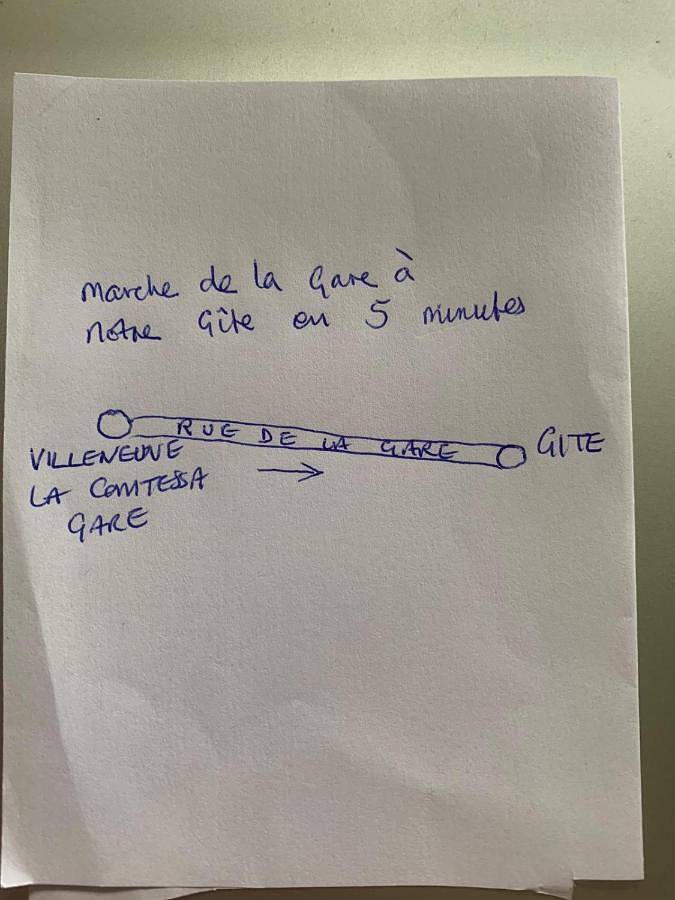 Marche de la Gare à
notre Gîte en 5 minutes
RUE DE LA GARE
GITE
VILLENEUVE
LA COMTESSA
GARE